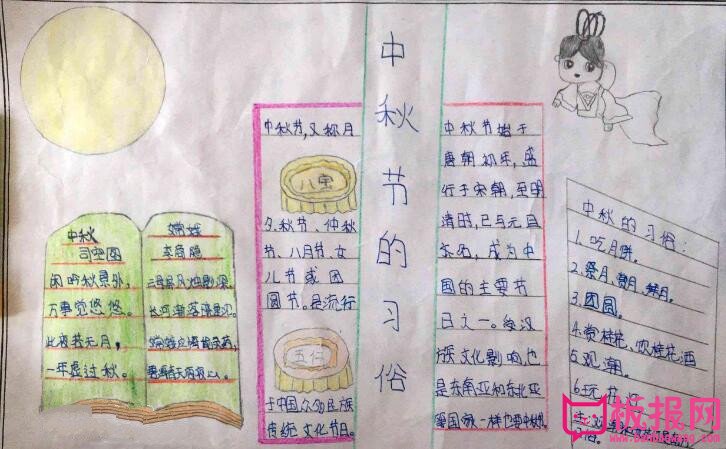 中秋节的习俗
中秋
司空图
闲吟秋景外,
万事觉悠悠。
此夜若无月,
一年虚过秋。
嫦娥
李商隐
长河渐落
中秋节,又称月
八宝
夕、秋节、仲秋
节、八月节、女
儿节或团
圆节。是流行
五仁
于中国众多民族
传统文化节日。
中秋节始于
唐朝初年,盛
行于宋朝,至明
清时,已与元旦
齐名,成为中
国的主要节
日之一。受汉
族文化影响,也
是东南亚和东北亚
中秋的习俗:
1.吃月饼。
2.祭月、赏月、拜月。
3.团圆。
4.赏桂花、饮桂花酒
5.观潮。
6.玩花灯
板报网
www.banbaowang.com